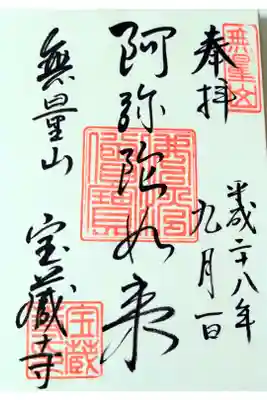 奉拝
無量山
平成二十八年
九月一日
阿弥陀如来
無量山
宝蔵寺